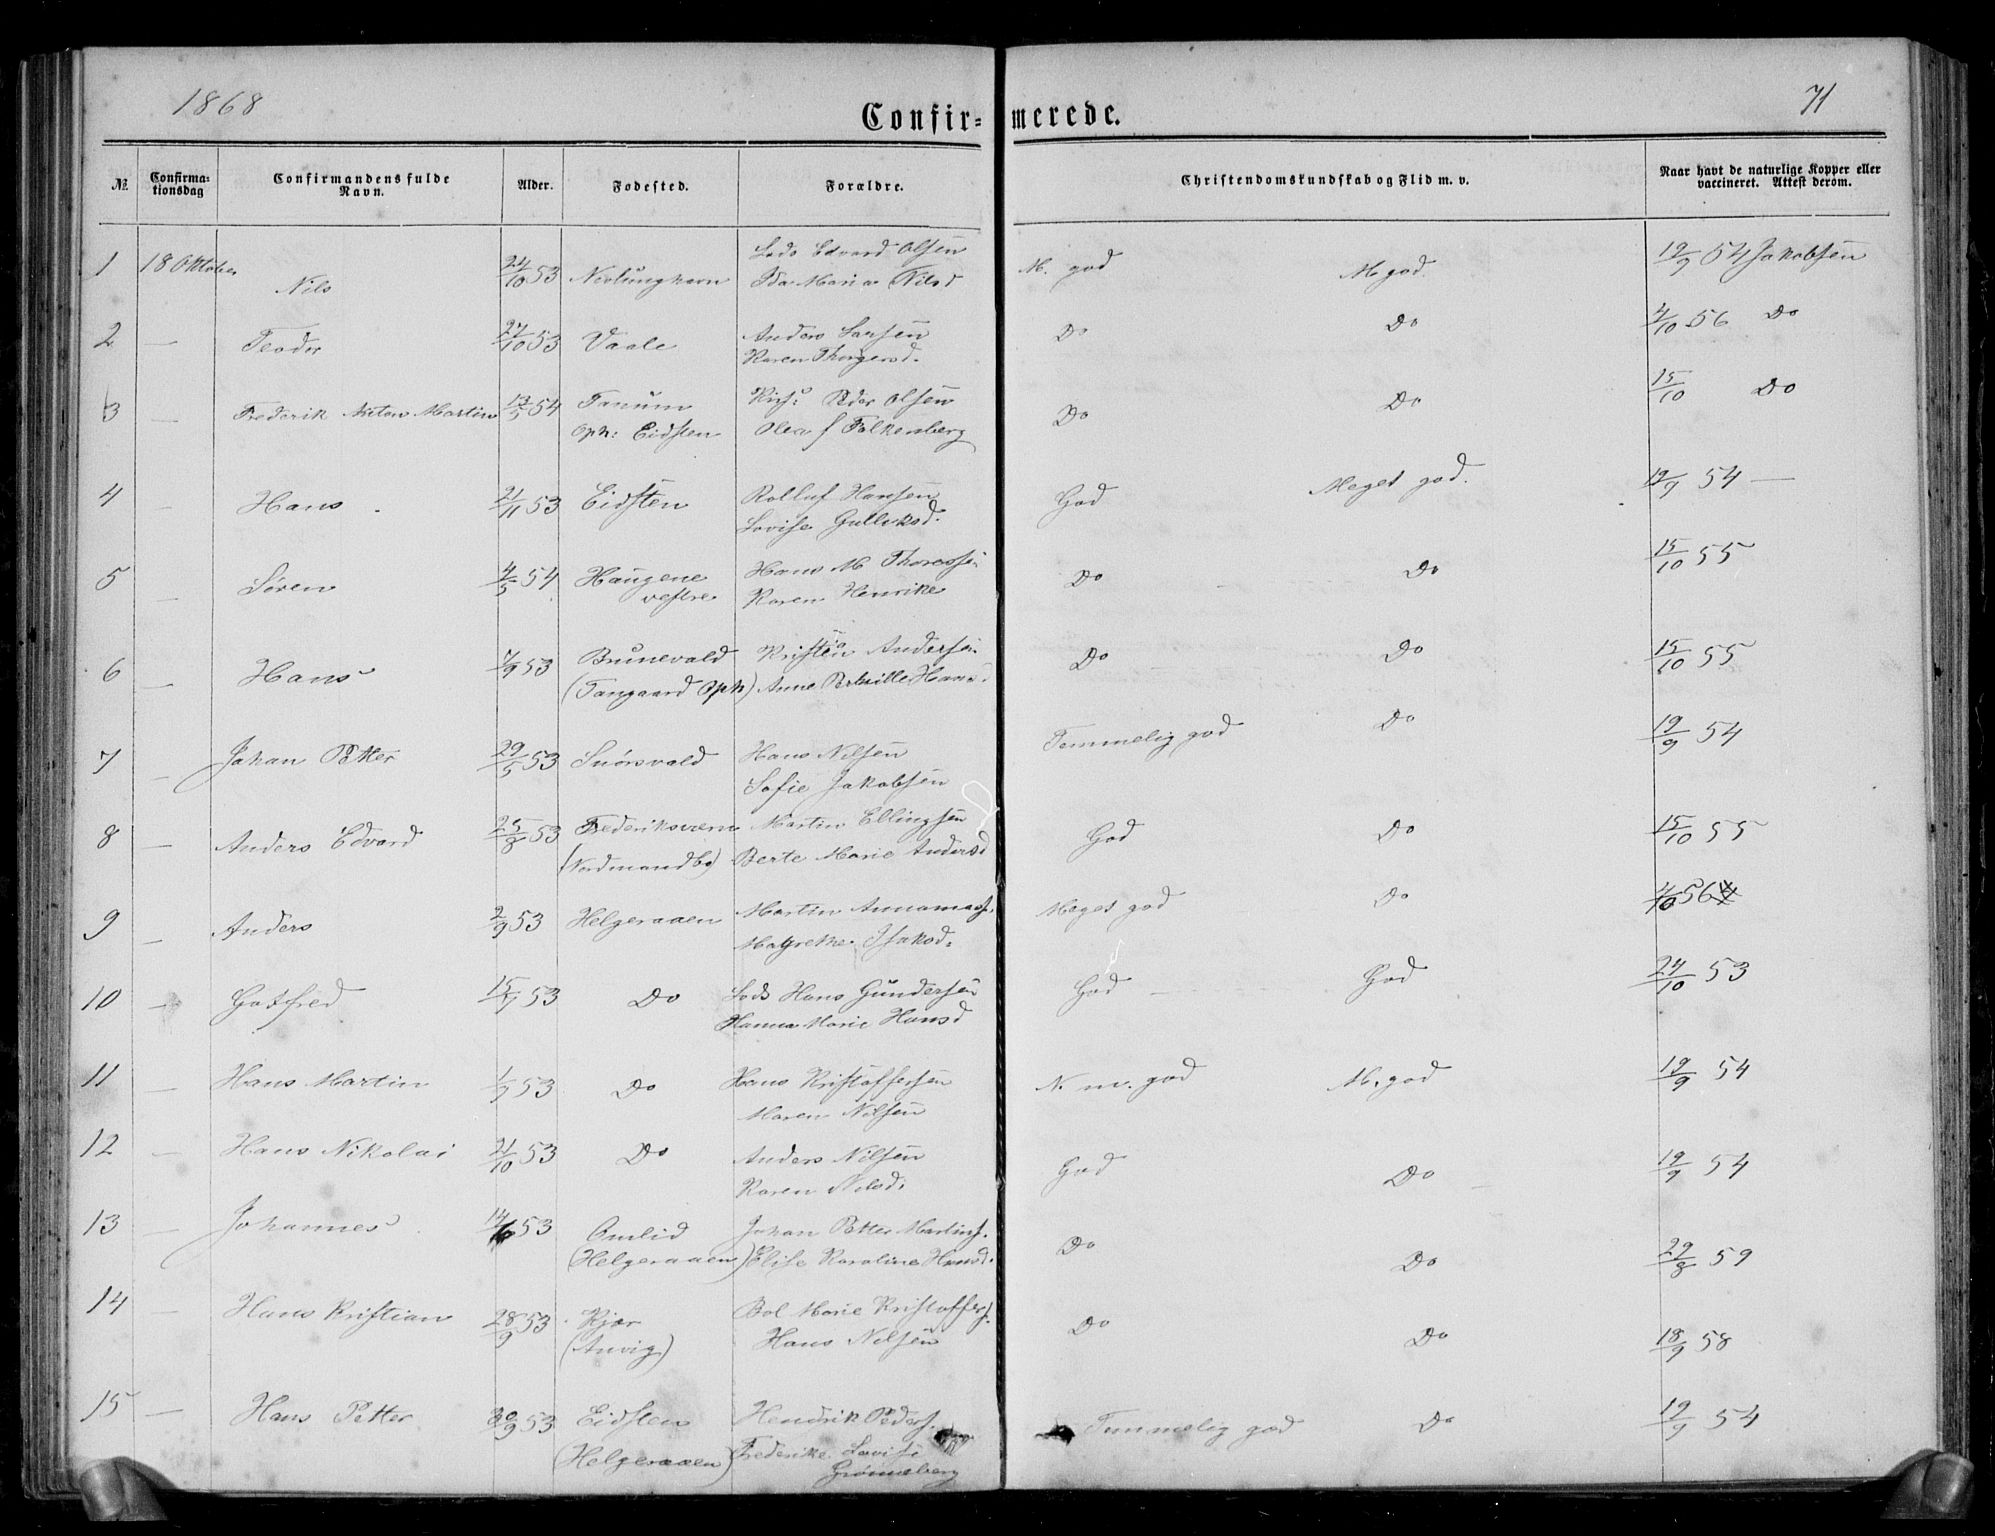 1868
71
Confir- merede.
№ Confirma-tionsdag Confirmandens fulde Navn. Alder. Fodested. Forældre. Christendomskundskab og Flid m. v. Naar havt de naturlige Kopper eller vaccineret. Attest derom.
1 18 Oktober Nils 24/10 53 Nevlunghavn Lods Edvard Olsen M. god M god. 19/9 54 Jakobsen
Ida Maria Nilsd
2 — Teodor 27/10 53 Vaale Anders Larsen Do Do 4/10 56 Do
Karen Thorgersd.
3 — Frederik Anton Martin 13/5 54 Tanum Peder Olsen Do Do 15/10 Do
Oph: Eidsten Olea f Falkenberg
4 — Hans 21/11 53 Eidsten Rolluf Hansen God Meget god. 19/9 54 —
Lovise Gulliksd.
5 — Søren 4/5 54 Haugene Hans M Do Do 15/10 55
vestre Karen Henrike
6 — Hans 7/9 53 Brunevald Kristen Andersen Do Do 15/10 55
(Tangaard Oph) Anne Hansd
7 — Johan Petter 29/5 53 Hans Nilsen Temmelig god Do 19/9 54
Sofie Jakobsen
8 — Anders Edvard 25/8 53 Frederiksværn Martin Ellingsen God Do 15/10 55
(Nordmandby) Berte Marie Andersd
9 — Anders 2/9 53 Helgeraaen Martin Meget god Do 4/10 56
Magrethe Isaksd.
10 — Gotfred 15/7 53 Do Lods Hans Gundersen God God 24/10 53
Hanna Marie Hansd
11 — Hans Martin 1/7 53 Do Hans Kristoffersen N. m. god M. god 19/9 54
Maren Nilsen
12 — Hans Nikolai 21/10 53 Do Anders Nilsen God Do 19/9 54
Karen Nilsd.
13 — Johannes 53 Omlid Johan Petter Martins. Do Do 29/8 59
(Helgeraaen) Elise Karoline Hansd.
14 — Hans Kristian 28/9 53 Kjær Bol Marie Kristoffers. Do Do 18/9 58
(Anvig) Hans Nilsen
15 — Hans Petter 30/9 53 Eidsten Hendrik Peders. Temmelig god Do 19/9 54
(Helgeraaen) Frederike Lovise
Grønneberg